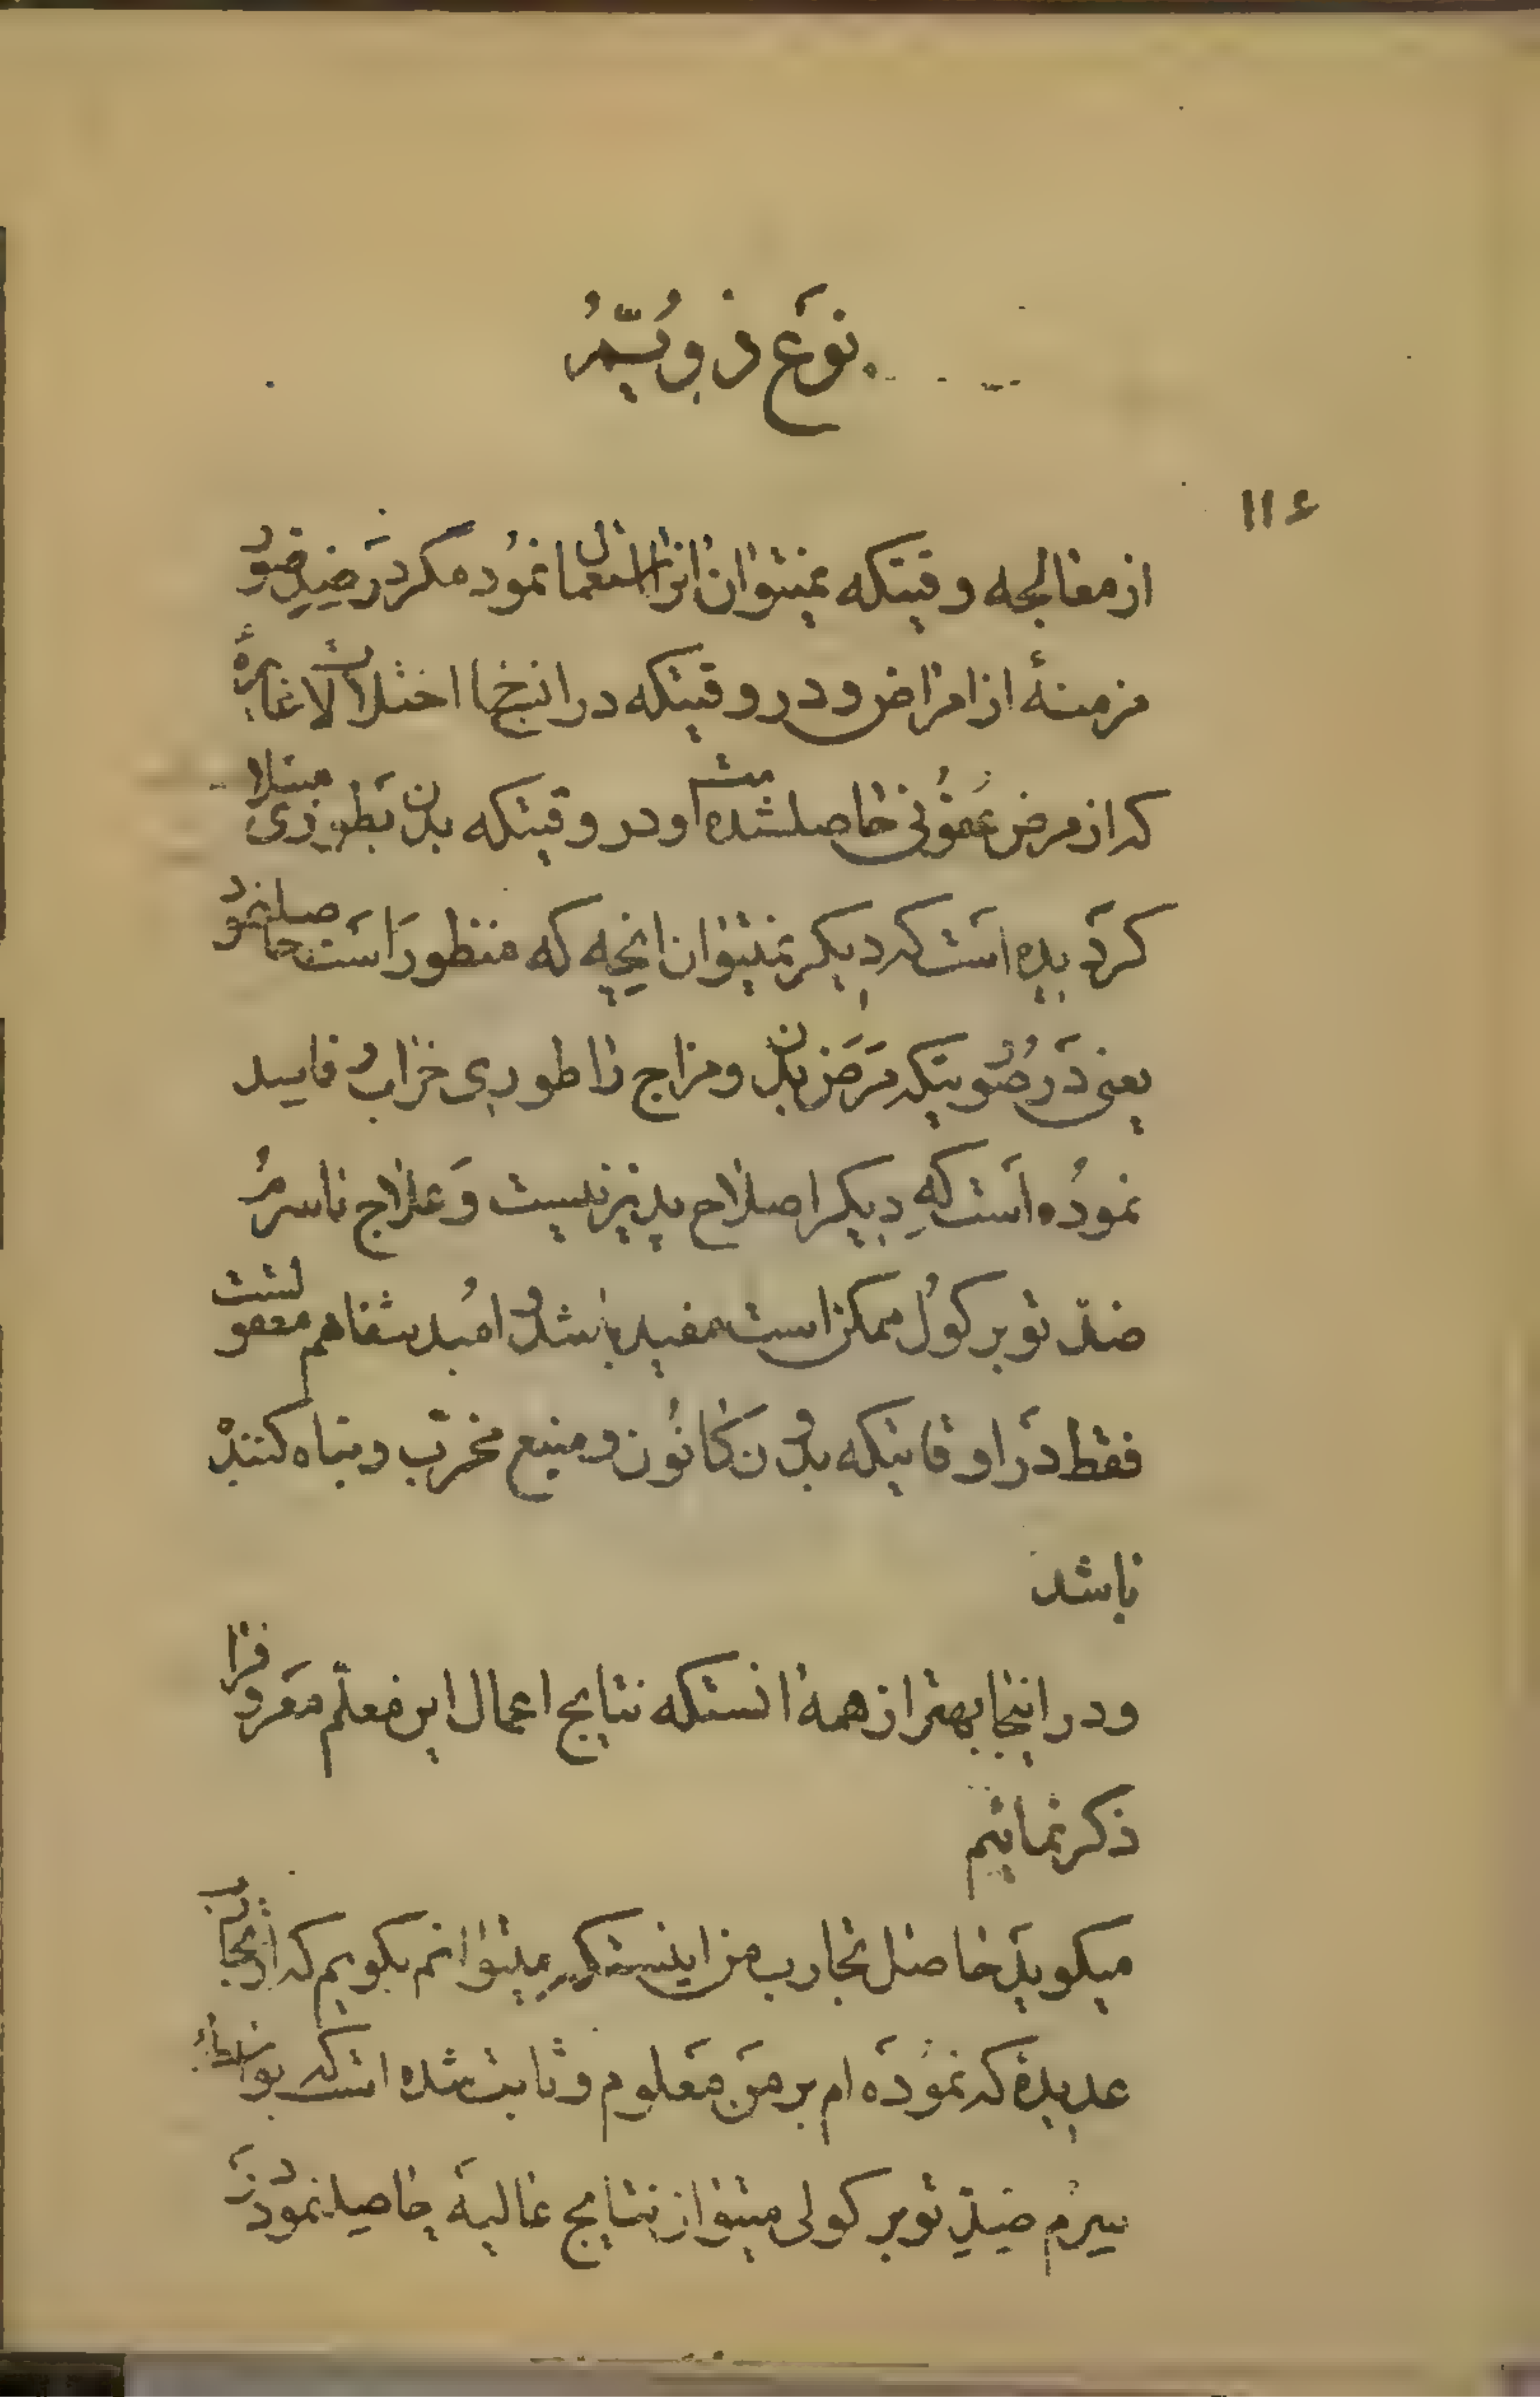 نوع ذوبیتم
۱۱۶
از معالجه وقتیکه نمیتوان انرا استعمال نمود مکر در ضد صور
مزمنهٔ از امراض و در وقتیکه در انبخا اختلالات غایرهٔ
که از مرض عفونی حاصلشده است و در وقتیکه بدن بطوری مبتلا
کردیده است که دیکر نمیتوان انچه که منظور است حاصلنمود
یعنی در صورتیکه مرض بدن و مزاج را طوری خراب و فاسد
نموده است که دیکر اصلاح پذیر نیست و علاج با سرم
ضد توبرکول ممکن است مفید باشد و امید شفا هم معقو لست
فقط در اوقاتیکه بدن کانون و منبع مخرب و تباه کننده
باشد
و در اینجا بهتر از همه انستکه نتایج اعمال این معلم معروف را
ذکر نمائیم
میکوید حاصل تجارب من اینستکه میتوانم بکویم که از تجارب
عدیدهٔ که نموده ام بر من معلوم و ثابت شده است که بواسطهٔ
سرم ضد توبرکولی میتوان نتایج عالیه حاصلنمود در